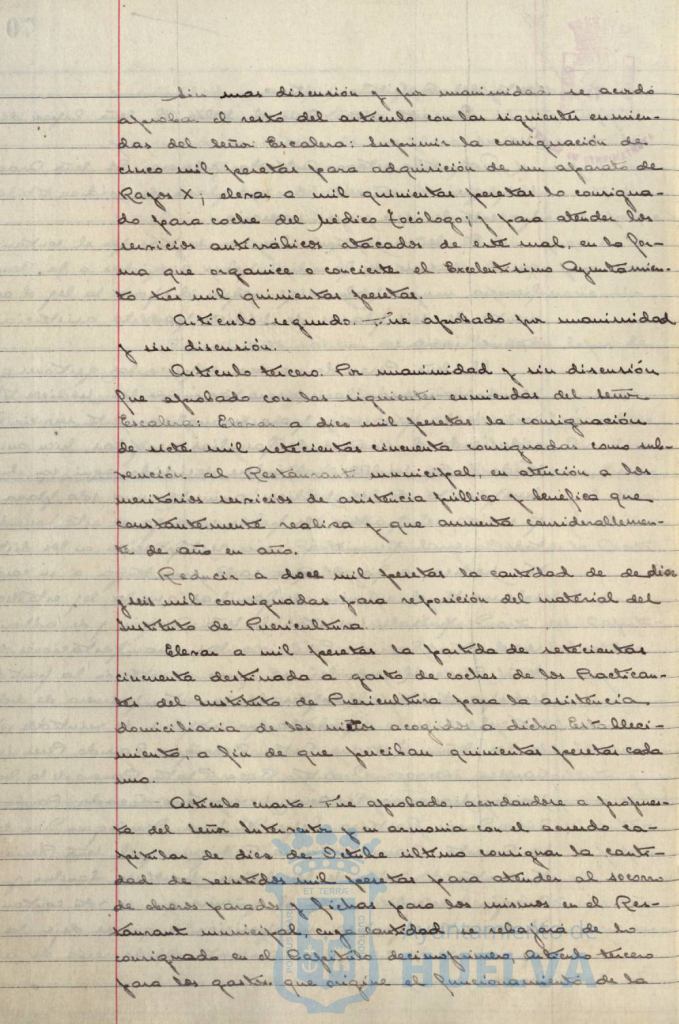 Sin mas discusión y por unanimidad se acordó
aprobar el resto del artículo con las siguientes enmien-
das del Señor Escalera: Suprimir la consignación de
cinco mil pesetas para adquisición de un aparato de
Rayos X; elevar a mil quinientas pesetas lo consigna-
do para coche del Médico Tocólogo; y para atender los
servicios antirrábicos atacados de este mal, en la for-
ma que organice o concierte el Excelentísimo Ayuntamien-
to tres mil quinientas pesetas.
Artículo segundo. Fue aprobado por unanimidad
y sin discusión.
Artículo tercero. Por unanimidad y sin discusión
fue aprobado con las siguientes enmiendas del Señor
Escalera: Elevar a diez mil pesetas la consignación
de siete mil setecientas cincuenta consignadas como sub-
vención al Restaurant municipal, en atención a los
meritorios servicios de asistencia pública y benéfica que
constantemente realiza y que aumenta considerablemen-
te de año en año.
Reducir a doce mil pesetas la cantidad de de diez
y seis mil consignadas para reposición del material del
Instituto de Puericultura.
Elevar a mil pesetas la partida de setecientas
cincuenta destinada a gasto de coches de los Practican-
tes del Instituto de Puericultura para la asistencia
domiciliaria de los niños acogidos a dicho Estableci-
miento, a fin de que perciban quinientas pesetas cada
uno.
Artículo cuarto. Fue aprobado, acordándose a propues-
ta del Señor Interventor y en armonía con el acuerdo ca-
pitular de diez de Octubre último consignar la canti-
dad de veintidós mil pesetas para atender al socorro
de obreros parados y fichas para los mismos en el Res-
taurant municipal, cuya cantidad se rebajará de lo
consignado en el Capítulo decimoprimero, Artículo tercero
para los gastos que origine el funcionamiento de la
Ayuntamiento de
HUELVA